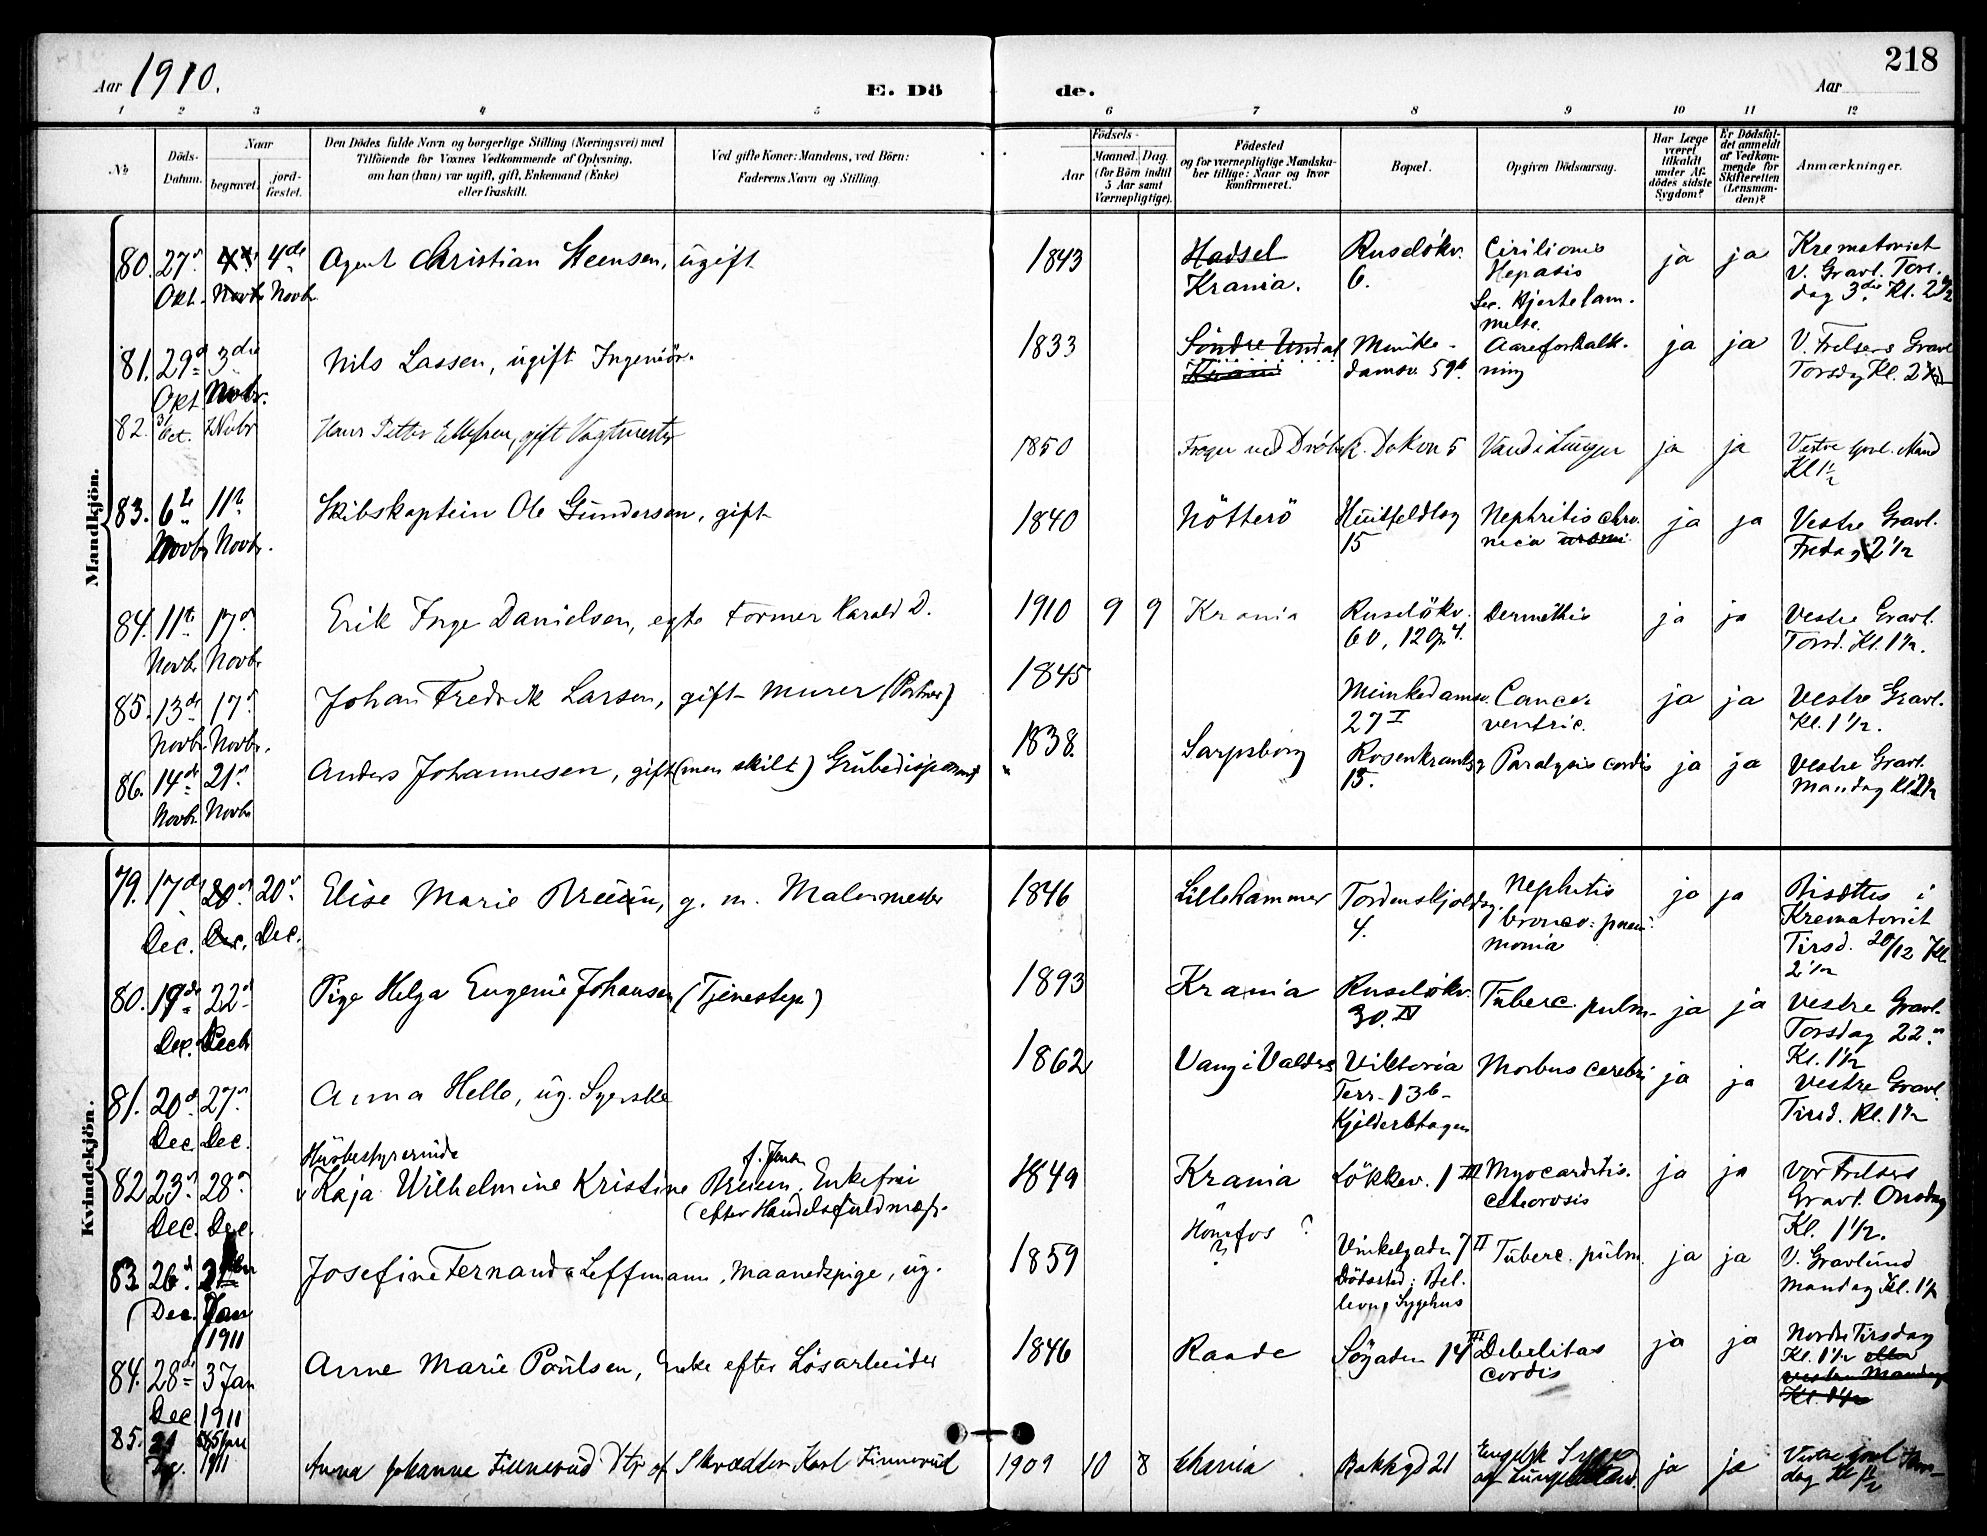 218
Aar 1910.
E. Dö de.
Aar
1 2 3 4 5 6 7 8 9 10 11 12
No
Döds-Datum.
Naar
begravet.
jord-fæstet.
Den Dödes fulde Navn og borgerlige Stilling (Næringsvei) med
Tilföiende for Voxnes Vedkommende af Oplysning,
om han (hun) var ugift, gift, Enkemand (Enke)
eller fraskilt.
Ved gifte Koner: Mandens, ved Börn:
Faderens Navn og Stilling.
Födsels-
Aar
Maaned. Dag.
(for Börn indtil
5 Aar samt
Værnepligtige).
Födested
og for værnepligtige Mandska-
ber tillige: Naar og hvor
konfirmeret.
Bopæl.
Opgiven Dödsaarsag.
Har Læge
været
tilkaldt
under Af-
dödes sidste
Sygdom?
Er Dödsfal-
det anmeldt
af Vedkom-
mende for
Skifteretten
(Lensman-
den)?
Anmærkninger.
Mandkjön.
80. 27 Okt. 4 Novbr 4de Novbr. Agent Christian Steensen, ugift 1843 Hadsel Krania. Ruselökv. 6. Hepatis Hjertelammelse. ja ja Krematoriet V. Gravl. Torsdag 3die Kl. 2 1/2
81. 29 Okt. 3die Novbr. Nils Lassen, ugift Ingeniör. 1833 Söndre Undal Krania Munkedamsv. 59b. Aareforkalkning ja ja V. Frelsers Gravl Torsdag Kl. 2
82. Oct. Nvbr Hans Petter Ellefsen, gift Vagtmester 1850 Drøbak Dokvn 5 Vand i Lunger ja ja Vestre Gravl. Kl 1 1/2
83. 6te Novbr 11te Novbr. Skibskaptein Ole Gundersen, gift 1840 Nötterö Huitfeldtsg 15 Nephritis chronica ja ja Vestre Gravl. Fredag 2 1/2
84. 11te Novbr. 17 Novbr. Erik Inge Danielsen, egte Former Harald D. 1910 9 9 Krania Ruselökv. 60, 12 Opg 4. ja ja Vestre Gravl. Torsd. Kl. 1 1/2.
85. 13de Novbr. 17 Novbr. Johan Fredrik Larsen, gift Murer (Portner) 1845 Munkedamsv. 27 I Cancer ventric. ja ja Vestre Gravl. Kl. 1 1/2.
86. 14de Novbr. 21 Novbr Anders Johannesen, gift (men skilt) 1838. Sarpsborg Rosenkrantzg 15. Paralysis cordis ja ja Vestre Gravl. Mandag Kl. 2 1/2
Kvindekjön.
79. 17de Dec. 20 Dec. 20 Dec. Elise Marie Bruun, g. m. Malermester 1846 Lillehammer Tordenskjoldsg. 4. Nephritis ja ja Bisættes i Krematoriet Tirsd. 20/12 Kl. 2 1/2
80. 19de Dec. 22 Decb Pige Helga Eugenie Johansen (Tjenestepi) 1893 Krania Ruselökv. 30. IV Tuberc. pulm. ja ja Vestre Gravl. Torsdag 22. Kl. 1 1/2
81. 20 Dec. 27 Dec. Anna Helle, ug. Syerske 1862 Vang i Valdres Viktoria Terr. 13b Morbus cerebri ja ja Vestre Gravl. Tirsd. Kl. 1 1/2
82 23 Dec. 28 Dec. Husbestyrerinde Kaja Wilhelmine Kristine Bruun, f. Jensen Enkefru (efter Handelsfuldmægt. 1849 Krania Lökkev. 1 III Myocarditis. ja ja Vor Frelsers Gravl. Onsdag Kl. 1 1/2.
83. 26 Dec. 2 Jan 1911 Josefine Fernanda Leffmann, Maanedspige, ug. 1859 Hönefos ? ? Vinkelgaden 7 II Dödssted: Sygehus Tuberc. pulm. ja ja V. Gravlund Mandag Kl. 1 1/2
84. 28de Dec 3 Jan 1911 Anne Marie Poulsen, Enke efter Lösarbeider 1846 Raade Sögaden 14 III Debelitas cordis ja ja Nordre Tirsdag Kl. 1 1/2 eller vestre Mandag Kl. 1 1/2
85. Dec. 1911 Anna Johanne Finnerud Dtr af Skrædder Karl Finnerud 1909 10 8 Chania Bakkegd 21 Engelsk Syge og ja ja Vestre Gravl Kl 1 1/2